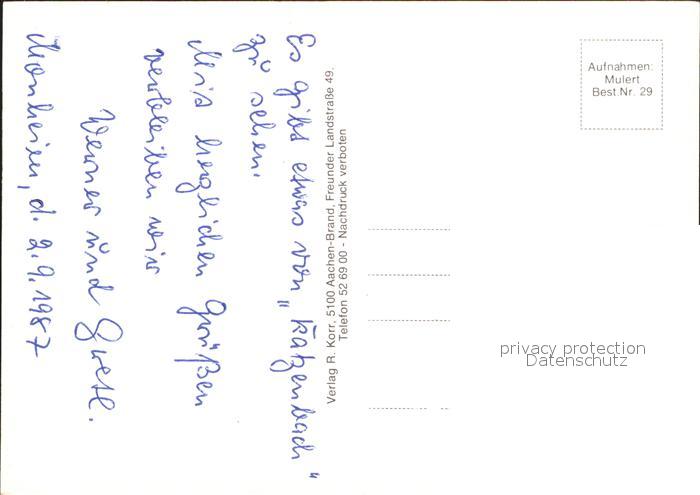 Es gibt etwas von „Katzenbach“
zu sehen.
Mit herzlichen Grüßen
verbleiben wir
Werner und
Monheim, d. 2.9.1987
Verlag R. Korr, 5100 Aachen-Brand, Freunder Landstraße 49.
Telefon 52 69 00 - Nachdruck verboten
Aufnahmen:
Mulert
Best.Nr. 29
privacy protection
Datenschutz